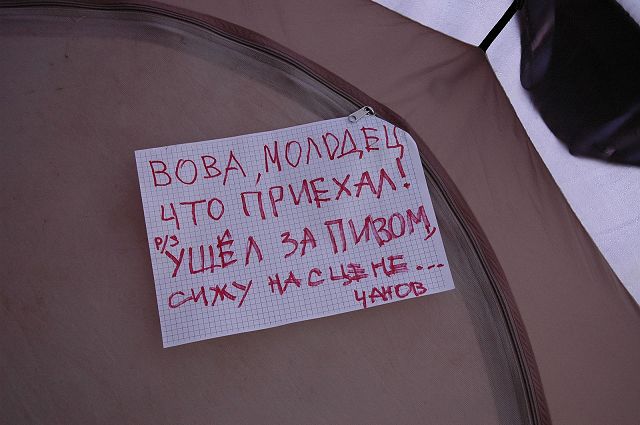 ВОВА, МОЛОДЕЦ
ЧТО ПРИЕХАЛ!
P/S
УШЁЛ ЗА ПИВОМ,
СИЖУ НА СЦЕНЕ...
ЧАНОВ